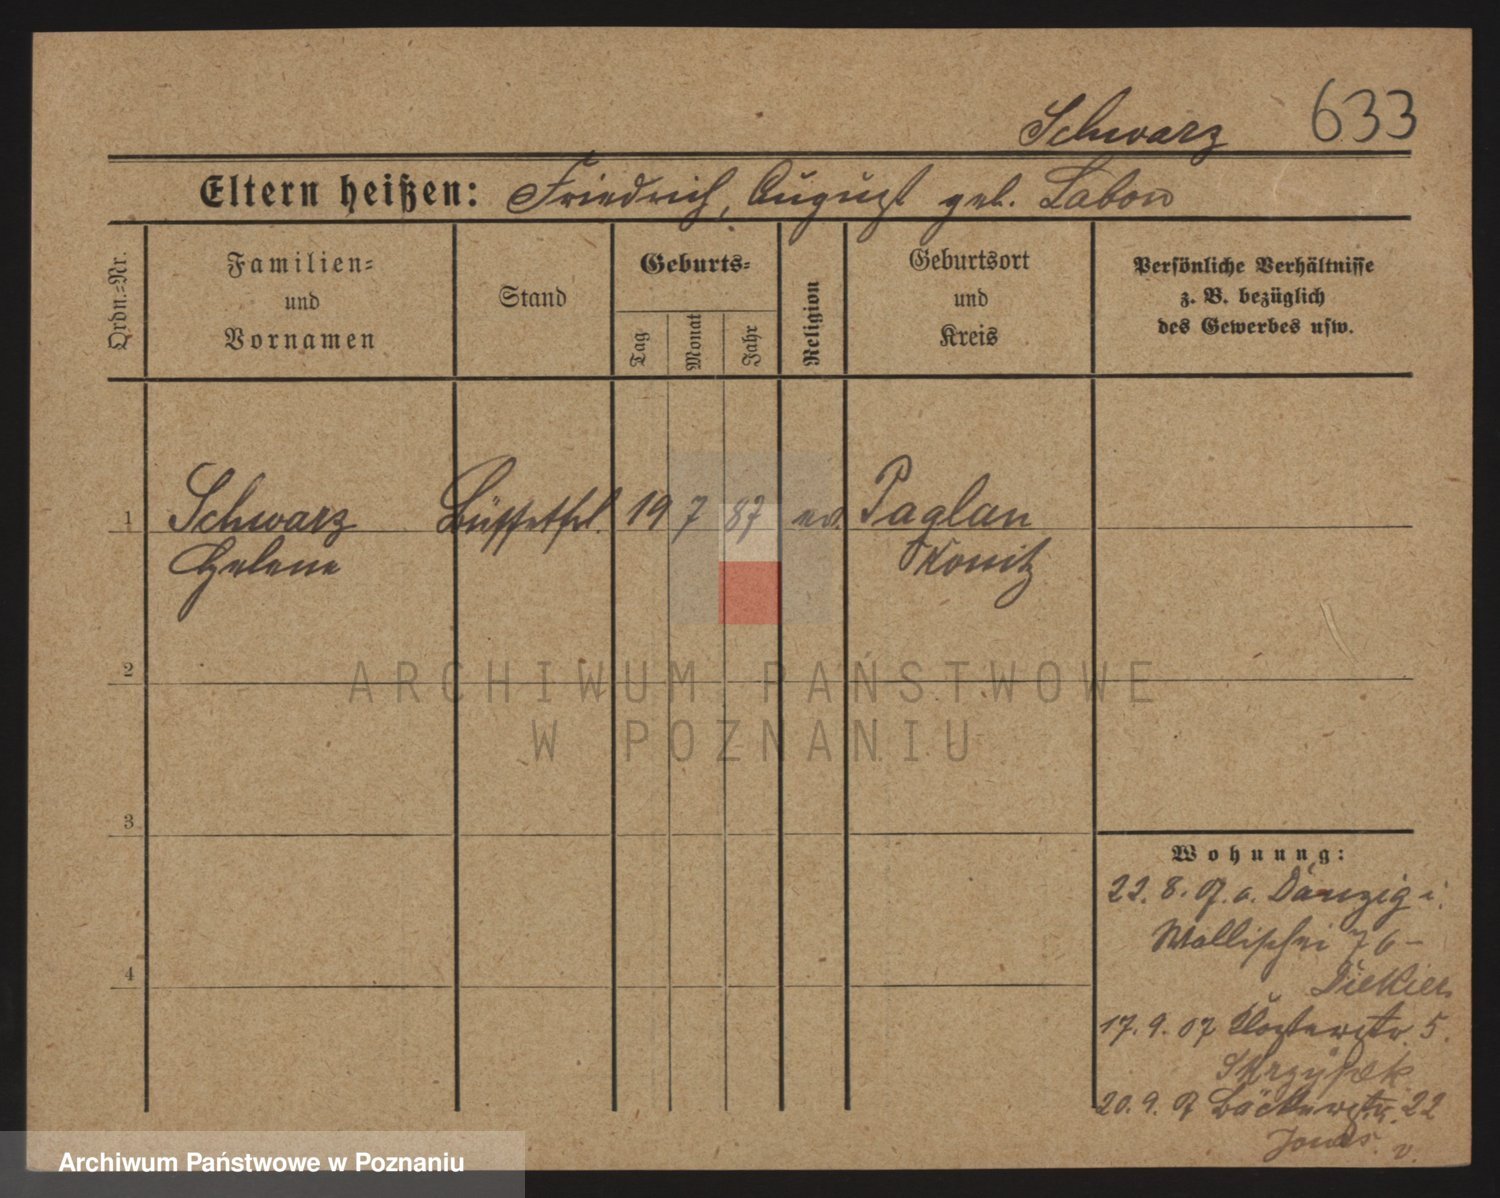 Schwarz 633
Eltern heißen: Friedrich, August geb. Labon
Ordn.-Nr.
Familien-
und
Vornamen
Stand
Geburts-
Tag
Monat
Jahr
Religion
Geburtsort
und
Kreis
Persönliche Verhältnisse
z. B. bezüglich
des Gewerbes usw.
1 Schwarz Büffetfrl. 19 7 87 ev. Paglau
Helene Konitz
2
ARCHIWUM PAŃSTWOWE
W POZNANIU
3
4
Wohnung:
22. 8. 07. a. Danzig i.
Wallischei 76 -
17. 9. 07 Klosterstr. 5.
Skrzypek
20. 9. 07 Bäckerstr. 22
v.
Archiwum Państwowe w Poznaniu